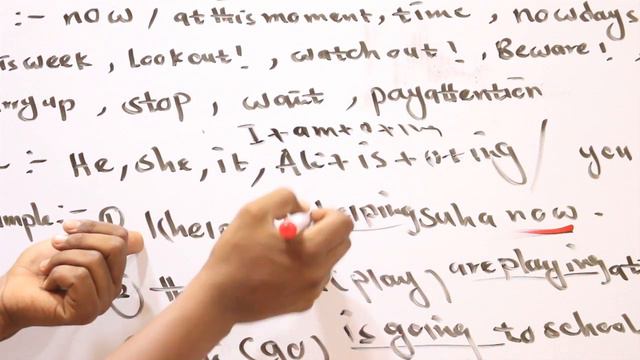 :- now / at this moment, time, nowdays
is week, Lookout!, watch out!, Beware!,
rry up, stop, wait, pay attention
I + am +
:- He, she, it, is + ing / you
mple :- ① (hel lping suha now.
② (play) are playing at
(go) is going to school